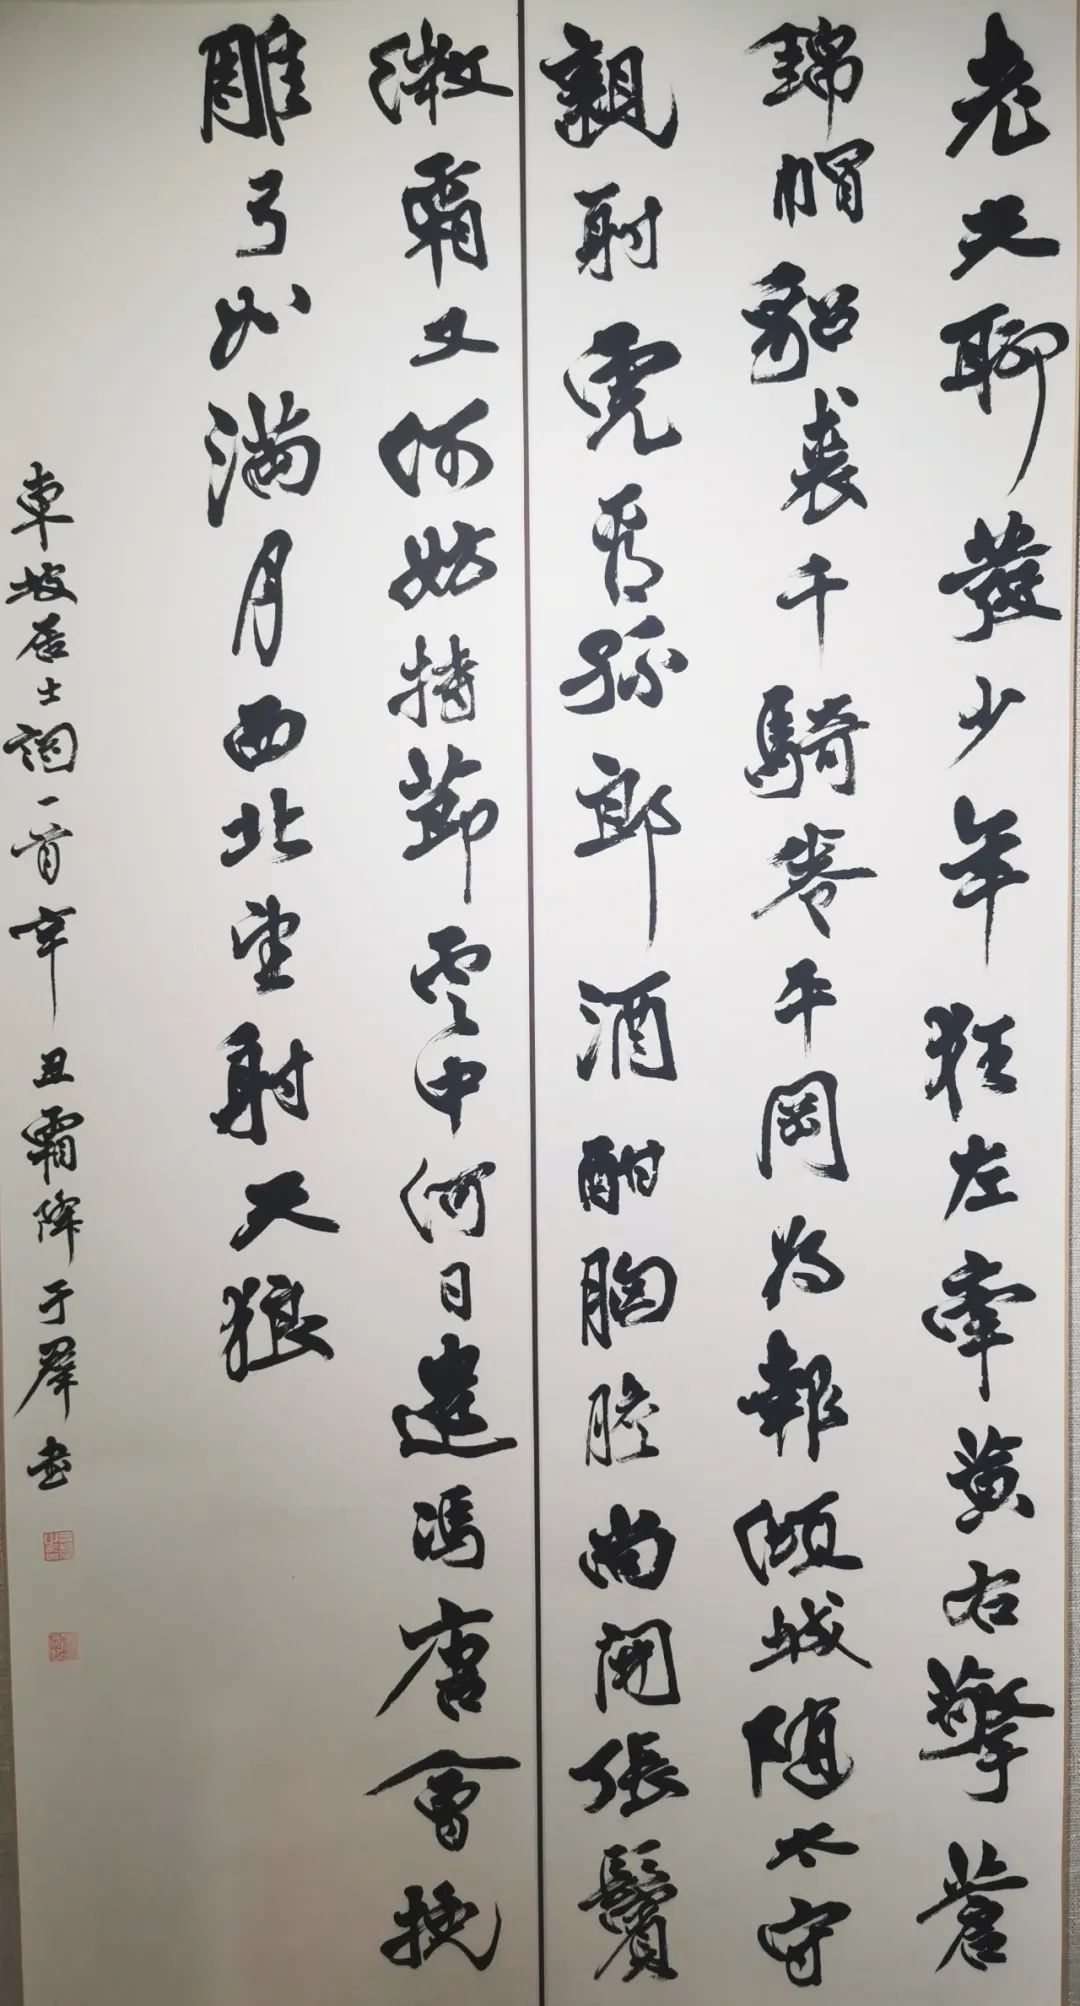 老夫聊發少年狂左牽黃右擎蒼
錦帽貂裘千騎卷平岡為報傾城隨太守
親射虎看孫郎酒酣胸膽尚開張鬢
微霜又何妨持節雲中何日遣馮唐會挽
雕弓如滿月西北望射天狼
東坡居士詞一首辛丑霜降于羣書